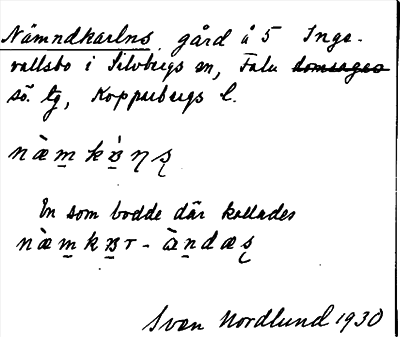 Nämndkarlns, gård å 5 Inge-
vallsbo i Silvbergs sn, Falu domsagas
sö. tg, Kopparbergs l.
nä̀m̱kʙ̀ṉş
En som bodde där kallades
nä̀m̱kʙr-ä̀ṉdæş
Sven Nordlund 1930